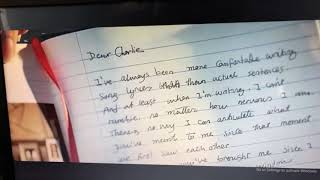 Dear Charlie,
I've always been more comfortable writing
song lyrics than actual sentences
And at least when I'm writing, I can't
ramble, no matter how nervous I am.
There's no way I can articulate what
you've meant to me since that moment
we first saw each other
you've brought me since I
Go to Settings to activate Windows.